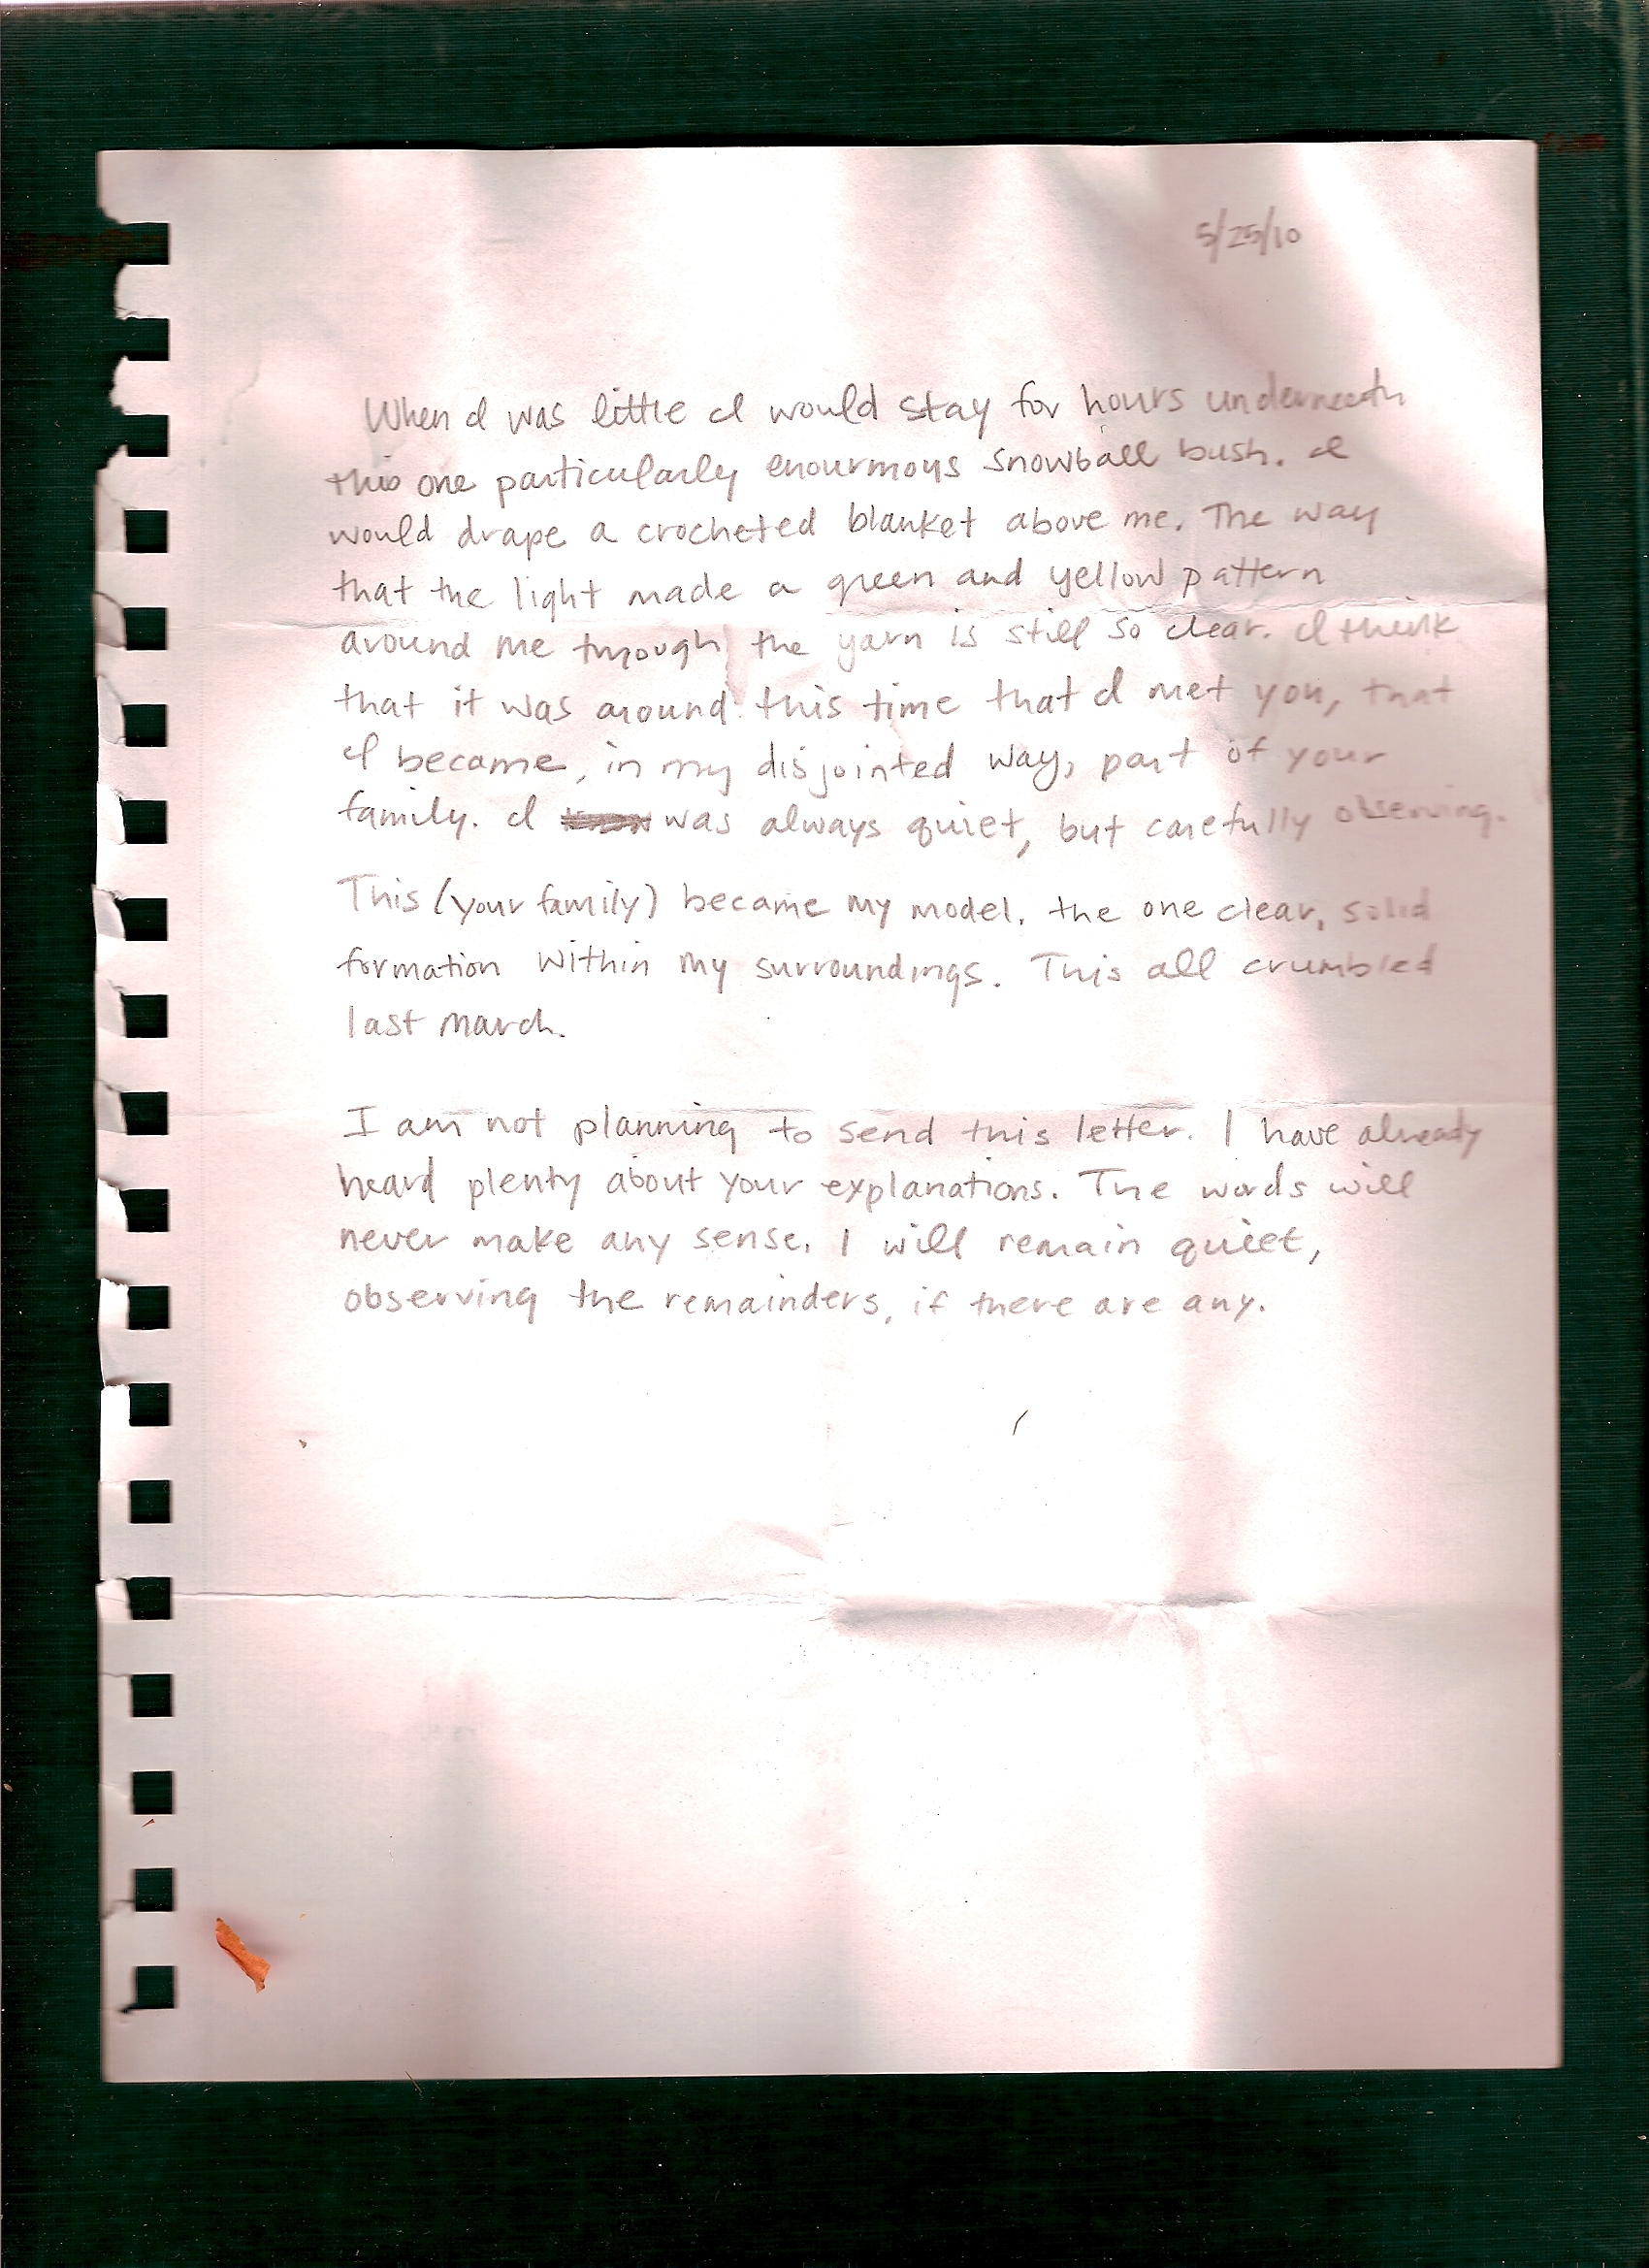 5/25/10
When I was little I would stay for hours underneath
this one particularly enourmous snowball bush. I
would drape a crocheted blanket above me. The way
that the light made a green and yellow pattern
around me through the yarn is still so clear. I think
that it was around this time that I met you, that
I became, in my disjointed way, part of your
family. I was always quiet, but carefully observing.
This (your family) became my model. the one clear, solid
formation within my surroundings. This all crumbled
last march.
I am not planning to send this letter. I have already
heard plenty about your explanations. The words will
never make any sense. I will remain quiet,
observing the remainders, if there are any.